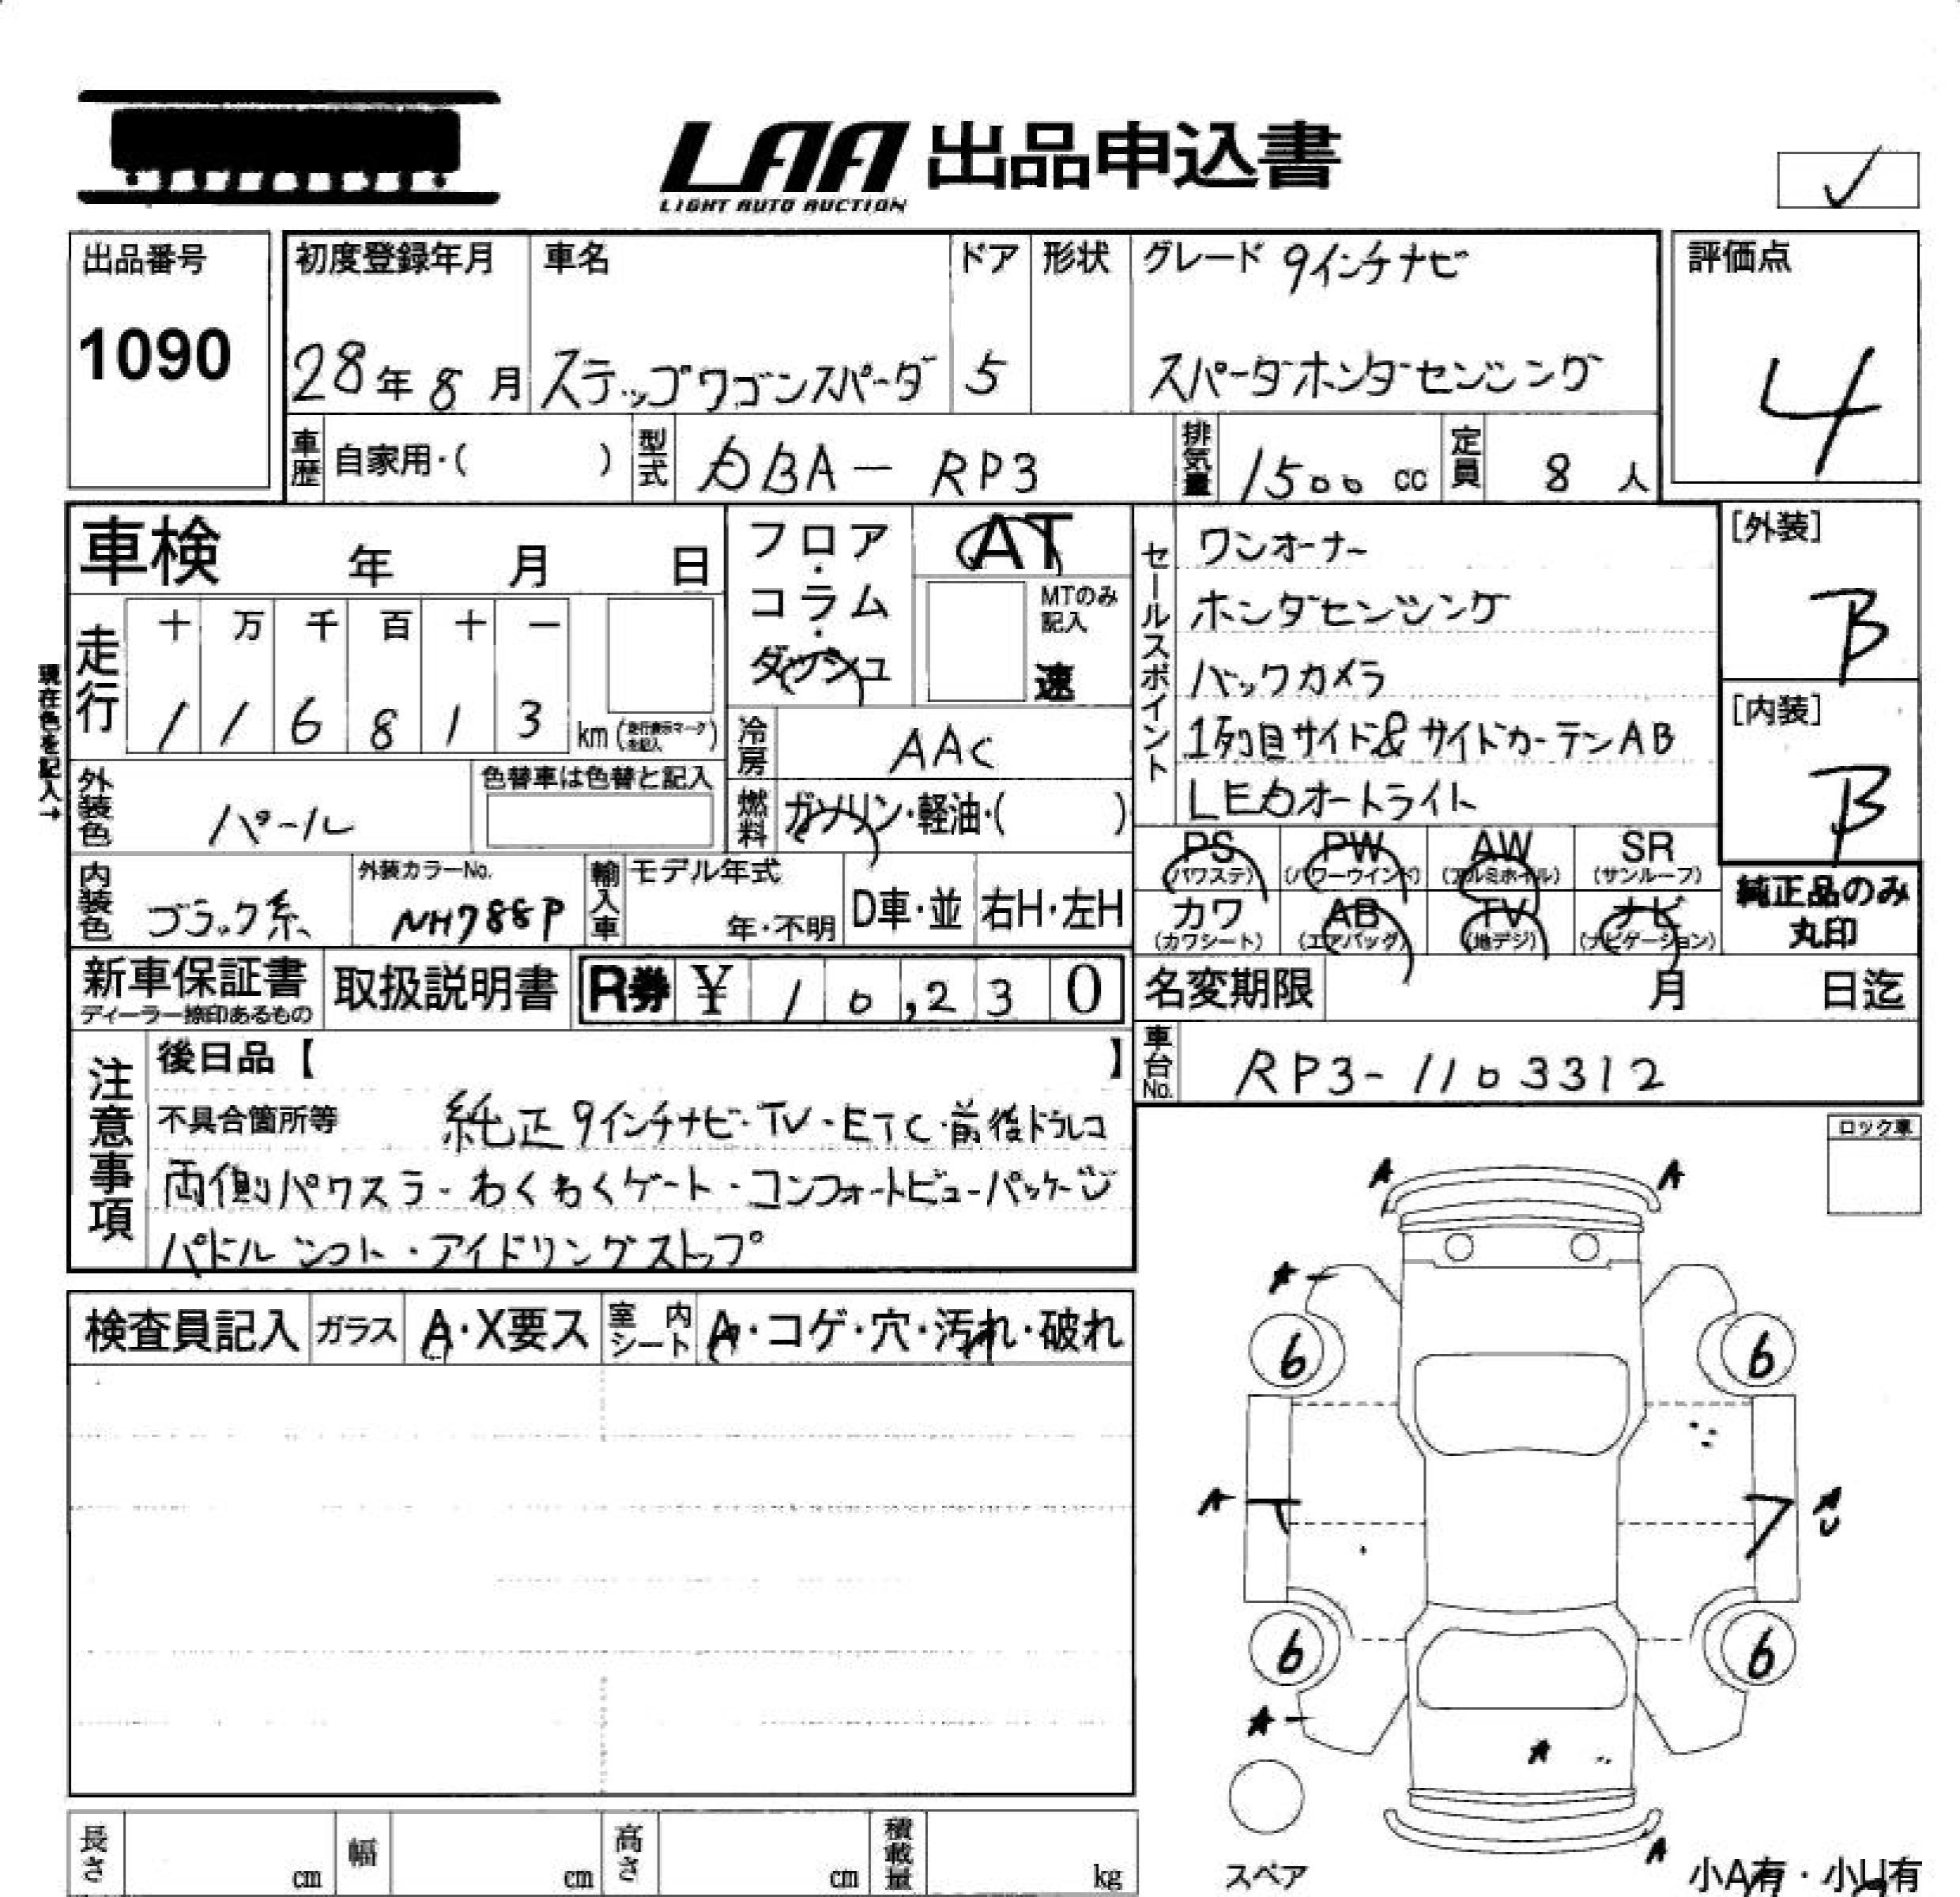 LAA 出品申込書
LIGHT AUTO AUCTION
✓
出品番号
1090
初度登録年月
28年8月
車名
ステップワゴンスパーダ
ドア
5
形状
グレード 9インチナビ
スパーダホンダセンシング
評価点
4
車歴 自家用・( )
型式 DBA-RP3
排気量 1500 cc
定員 8 人
車検 年 月 日
フロア・コラム・ダッシュ
AT
MTのみ記入
速
セールスポイント
ワンオーナー
ホンダセンシング
バックカメラ
1列目サイド&サイドカーテンAB
LEDオートライト
[外装]
B
[内装]
B
現在色を記入→
走行
十 万 千 百 十 一
1 1 6 8 1 3 km (走行表示マークを記入)
冷房 AAC
燃料 ガソリン・軽油・( )
外装色 パール
色替車は色替と記入
PS (パワステ)
PW (パワーウインド)
AW (アルミホイル)
SR (サンルーフ)
カワ (カワシート)
AB (エアバッグ)
TV (地デジ)
ナビ (ナビゲーション)
純正品のみ丸印
内装色 ブラック系
外装カラーNo. NH788P
輸入車 モデル年式 年・不明
D車・並
右H・左H
新車保証書
ディーラー捺印あるもの
取扱説明書
R券 ¥ 10,230
名変期限 月 日迄
車台No. RP3-1103312
注意事項
後日品【 】
不具合箇所等 純正9インチナビ・TV・ETC・前後ドラレコ
両側パワスラ・わくわくゲート・コンフォートビューパッケージ
パドルシフト・アイドリングストップ
ロック車
検査員記入
ガラス A・X要ス
室内シート A・コゲ・穴・汚れ・破れ
A A
A
6 6
A A
U
6 6
A
A
A
スペア
小A有・小U有
長さ cm
幅 cm
高さ cm
積載量 kg